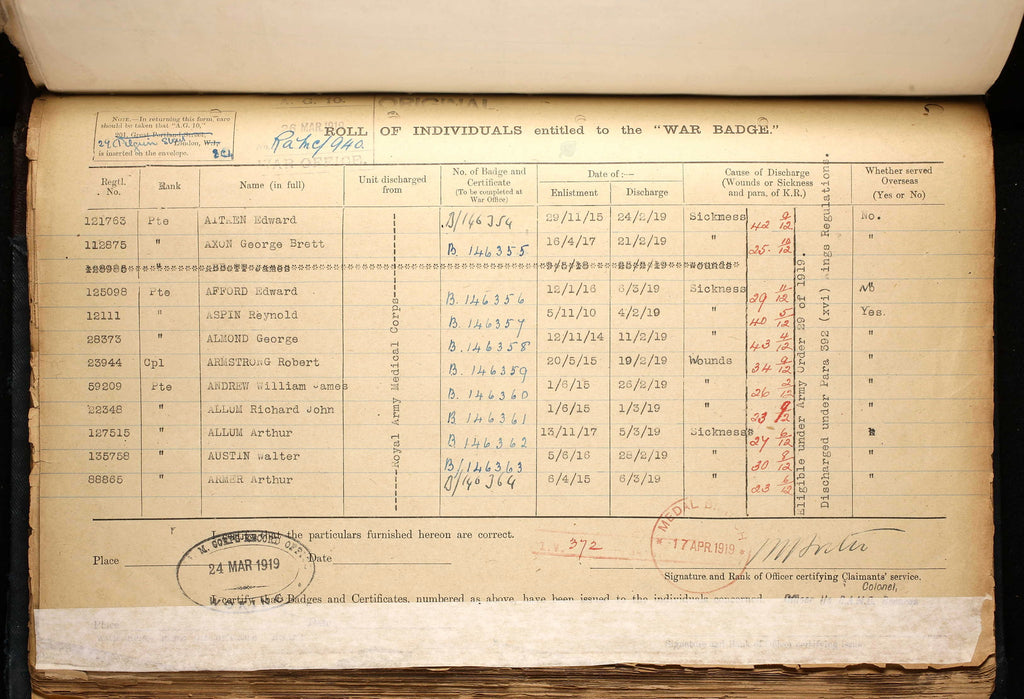 A. G. 10. ORIGINAL
NOTE.—In returning this form, care
should be taken that "A.G. 10,"
291, Great Portland Street,
27 Pilgrim St London, W.1.
is inserted on the envelope. EC4
26 MAR 1919
WAR OFFICE.
RAMC/940
ROLL OF INDIVIDUALS entitled to the "WAR BADGE."
Regtl. No. Rank Name (in full) Unit discharged from No. of Badge and Certificate (To be completed at War Office) Date of:— Enlistment Discharge Cause of Discharge (Wounds or Sickness and para. of K.R.) Whether served Overseas (Yes or No)
121763 Pte AITKEN Edward B/146354 29/11/15 24/2/19 Sickness 42 9/12 No.
112875 " AXON George Brett B. 146355 16/4/17 21/2/19 " 25 10/12 "
ABBOTT James Wounds
125098 Pte AFFORD Edward B. 146356 12/1/16 6/3/19 Sickness 29 11/12 No
12111 " ASPIN Reynold B. 146357 5/11/10 4/2/19 " 40 5/12 Yes.
28373 " ALMOND George B. 146358 12/11/14 11/2/19 " 43 4/12 "
23944 Cpl ARMSTRONG Robert B. 146359 20/5/15 19/2/19 Wounds 34 9/12 "
59209 Pte ANDREW William James B. 146360 1/6/15 26/2/19 " 26 2/12 "
22348 " ALLUM Richard John B 146361 1/6/15 1/3/19 " 23 9/12 "
127515 " ALLUM Arthur B 146362 13/11/17 5/3/19 Sickness" 27 6/12 "
135758 " AUSTIN Walter B/146363 5/6/16 25/2/19 " 30 8/12 "
88865 " ARMER Arthur B/146364 6/4/15 6/3/19 " 23 6/12 "
Royal Army Medical Corps
Eligible under Army Order 29 of 1919.
Discharged under Para 392 (xvi) Kings Regulations.
I certify that the particulars furnished hereon are correct.
Place Date
24 MAR 1919
372
17 APR. 1919
Signature and Rank of Officer certifying Claimants' service.
Colonel,
I certify that Badges and Certificates, numbered as above, have been issued to the individuals concerned.
Place Date